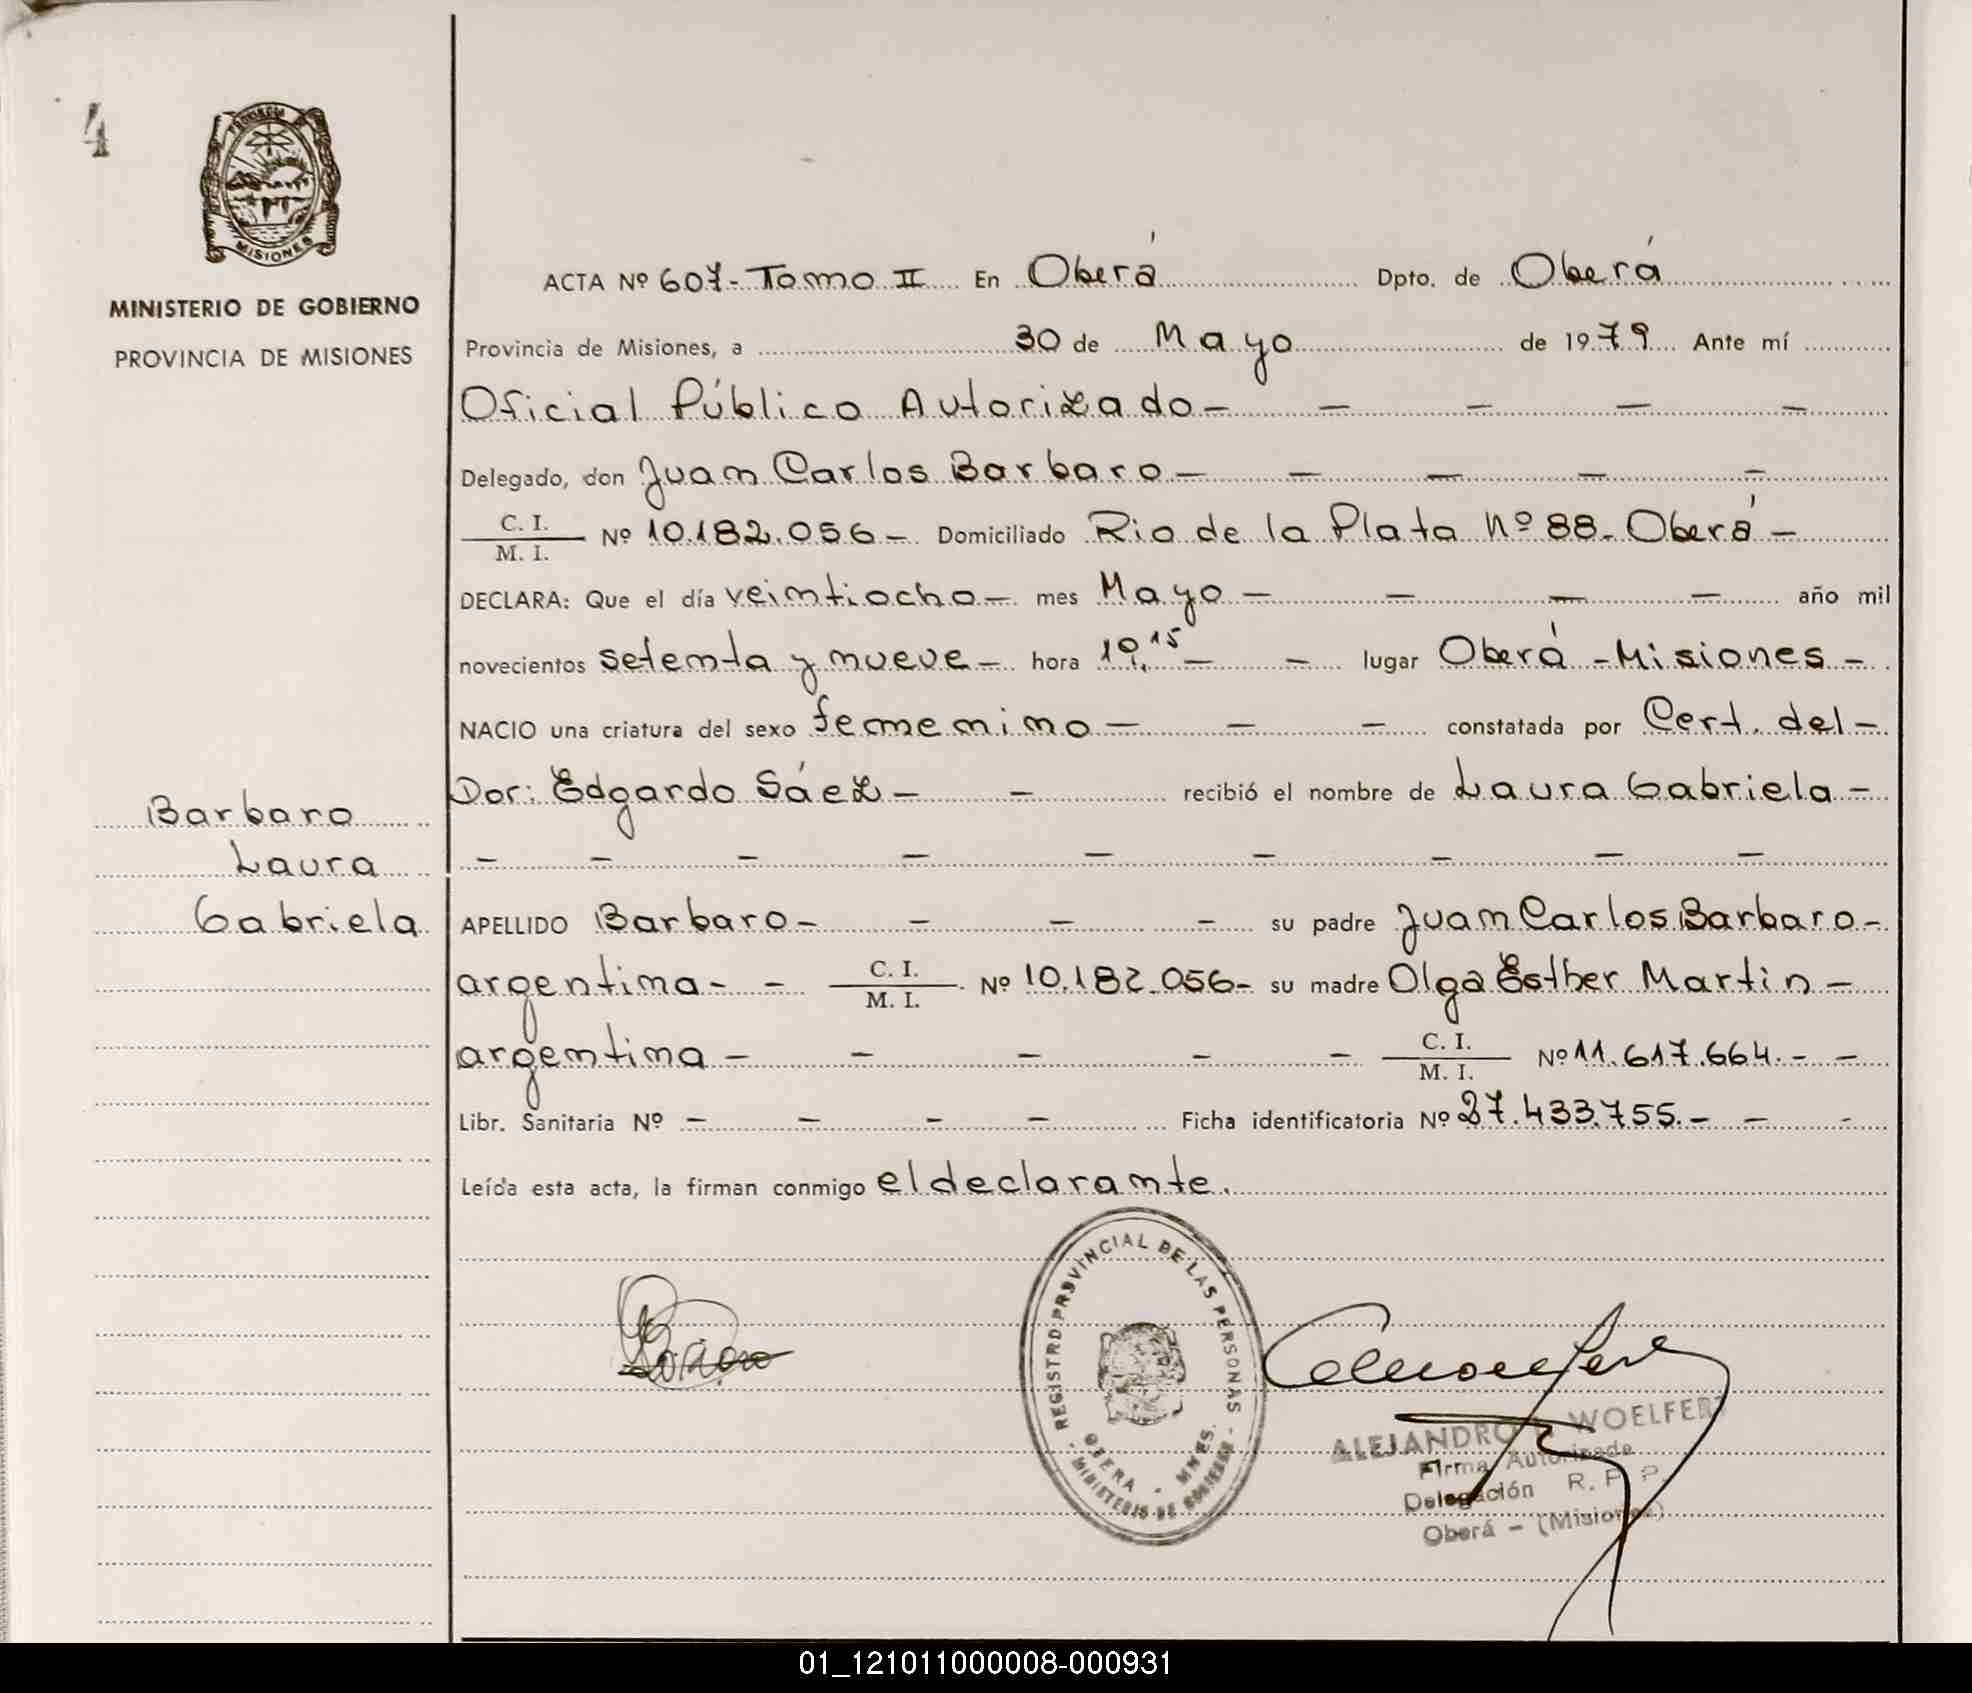 4
PROVINCIA
MISIONES
MINISTERIO DE GOBIERNO
PROVINCIA DE MISIONES
ACTA Nº 607- Tomo II En Oberá Dpto. de Oberá
Provincia de Misiones, a 30 de Mayo de 1979 Ante mí
Oficial Público Autorizado - - - - -
Delegado, don Juan Carlos Barbaro - - - - -
C. I.
M. I. Nº 10.182.056 - Domiciliado Rio de la Plata Nº 88 - Oberá -
DECLARA: Que el día veintiocho - mes Mayo - - - - año mil
novecientos setenta y nueve - hora 19,15 - - lugar Oberá - Misiones -
NACIO una criatura del sexo femenino - - - constatada por Cert. del -
Dor: Edgardo Sáez - - recibió el nombre de Laura Gabriela -
- - - - - - - - -
Barbaro
Laura
Gabriela
APELLIDO Barbaro - - - - su padre Juan Carlos Barbaro -
argentina - - C. I.
M. I. Nº 10.182.056 - su madre Olga Esther Martin -
argentina - - - - - C. I.
M. I. Nº 11.617.664. - -
Libr. Sanitaria Nº - - - - Ficha identificatoria Nº 27.433.755. - - -
Leída esta acta, la firman conmigo el declarante.
REGISTRO PROVINCIAL DE LAS PERSONAS
OBERA - MNES.
MINISTERIO DE GOBIERNO
ALEJANDRO WOELFERT
Firma Autorizada
Delegación R. P. P.
Oberá - (Misiones)
01_121011000008-000931